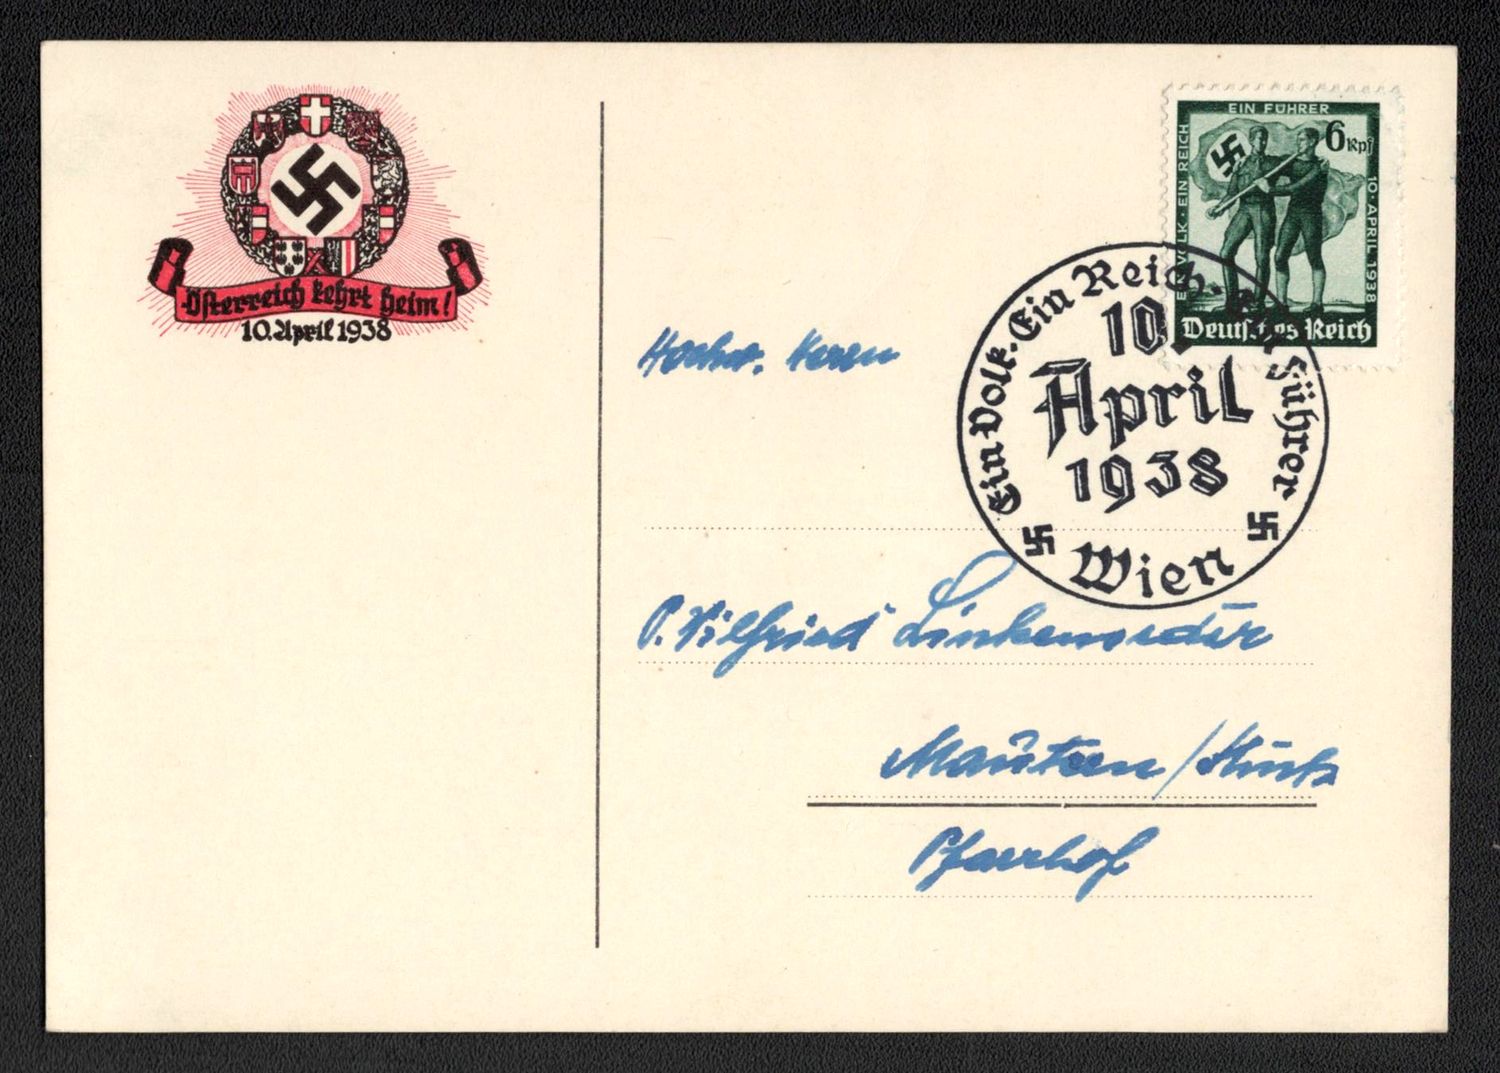 Österreich kehrt heim!
10. April 1938
EIN VOLK · EIN REICH
EIN FÜHRER
10. APRIL 1938
6 Rpf
Deutsches Reich
Ein Volk. Ein Reich. Ein Führer
10.
April
1938
Wien
Hochw. Herrn
P. Wilfried
Mautern /
Pfarrhof